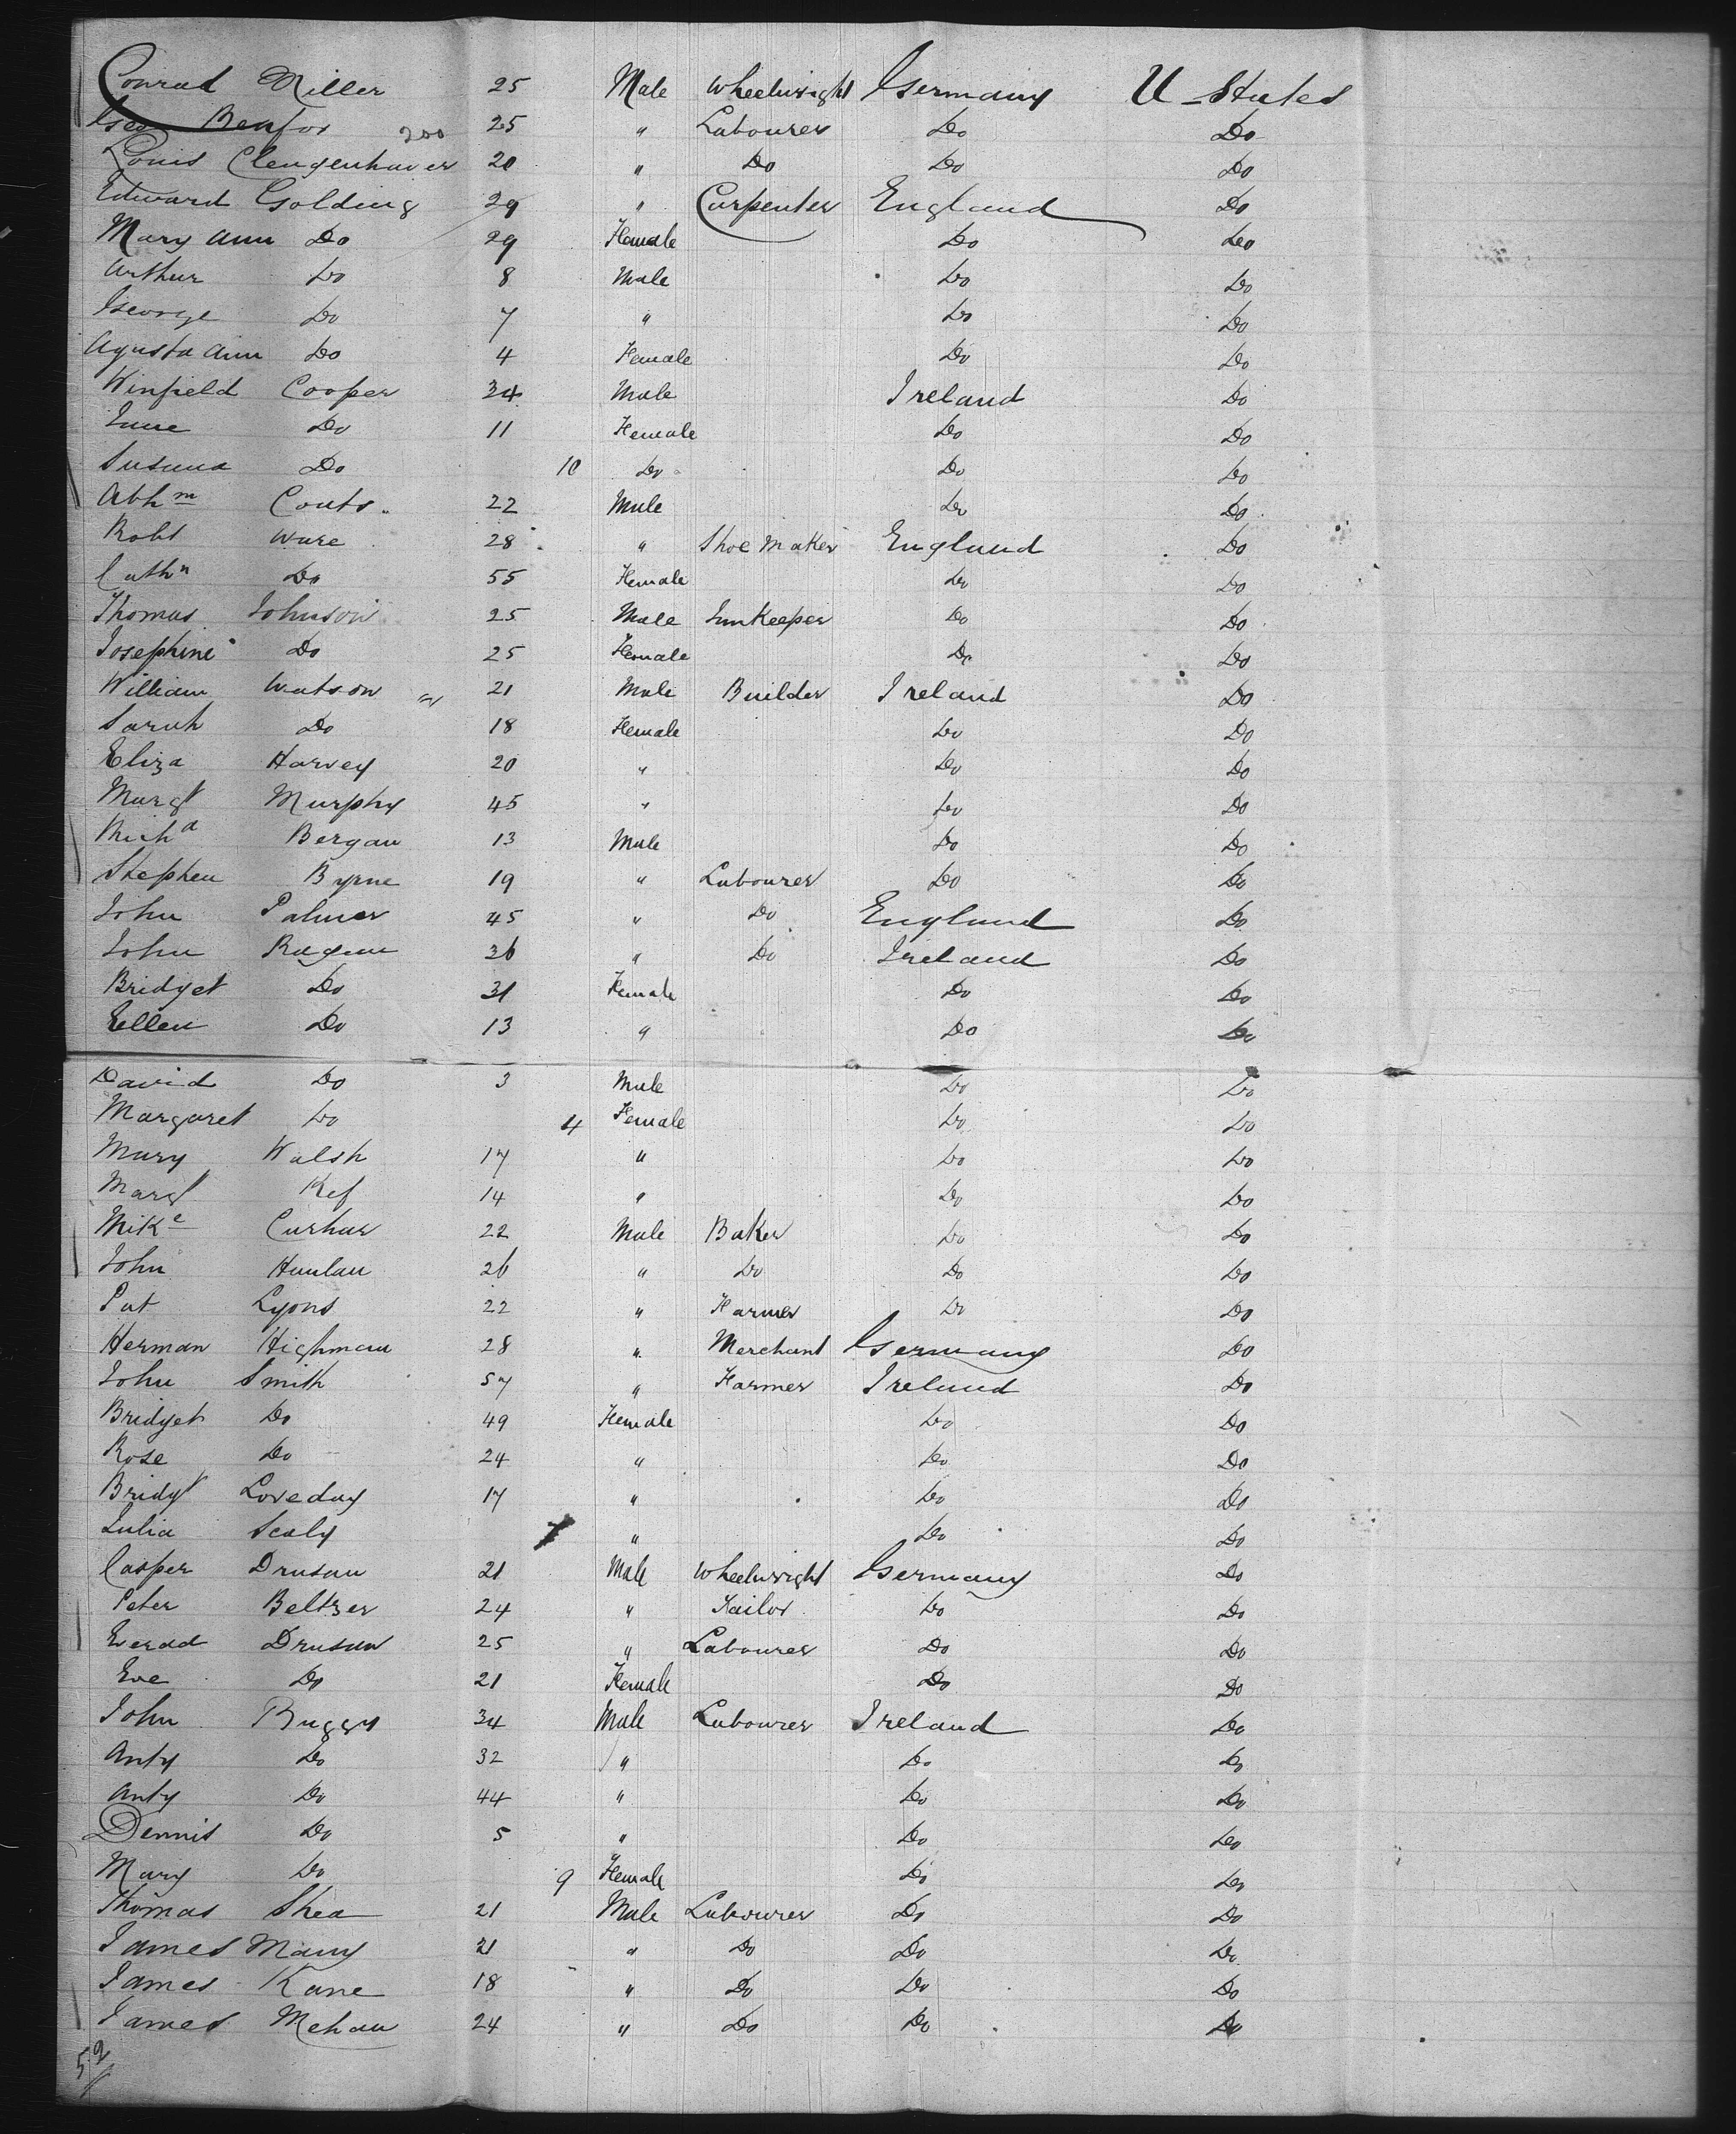 Conrad Miller 25 Male Wheelwright Germany U-States
Geo Benfor 200 25 " Labourer Do Do
Louis Clengenhaver 20 " Do Do Do
Edward Golding 29 " Carpenter England Do
Mary Ann Do 29 Female Do Do
Arthur Do 8 Male Do Do
George Do 7 " Do Do
Agusta Ann Do 4 Female Do Do
Winfield Cooper 34 Male Ireland Do
Do 11 Female Do Do
Susana Do 10 Do Do Do
Abhm Couts 22 Male Do Do
Robt Ware 28 " Shoe Maker England Do
Cathn Do 55 Female Do Do
Thomas Johnson 25 Male InnKeeper Do Do
Josephine Do 25 Female Do Do
William Watson 21 Male Builder Ireland Do
Sarah Do 18 Female Do Do
Eliza Harvey 20 " Do Do
Margt Murphy 45 " Do Do
Micha Bergan 13 Male Do Do
Stephen Byrne 19 " Labourer Do Do
John Palmer 45 " Do England Do
John Ragan 36 " Do Ireland Do
Bridget Do 31 Female Do Do
Ellen Do 13 " Do Do
David Do 3 Male Do Do
Margaret Do 4 Female Do Do
Mary Walsh 17 " Do Do
Margt Kef 14 " Do Do
Mike Curhar 22 Male Baker Do Do
John Hanlan 26 " Do Do Do
Pat Lyons 22 " Farmer Do Do
Herman Highman 28 " Merchant Germany Do
John Smith 57 " Farmer Ireland Do
Bridget Do 49 Female Do Do
Rose Do 24 " Do Do
Bridgt Loveday 17 " Do Do
Julia Scaly " Do Do
Casper Drusan 21 Male Wheelwright Germany Do
Peter Beltzer 24 " Tailor Do Do
Everad Drusan 25 " Labourer Do Do
Eve Do 21 Female Do Do
John Buggy 34 Male Labourer Ireland Do
Anty Do 32 " Do Do
Anty Do 44 " Do Do
Dennis Do 5 " Do Do
Mary Do 9 Female Do Do
Thomas Shea 21 Male Labourer Do Do
James Many 21 " Do Do Do
James Kane 18 " Do Do Do
James Mehan 24 " Do Do Do
52